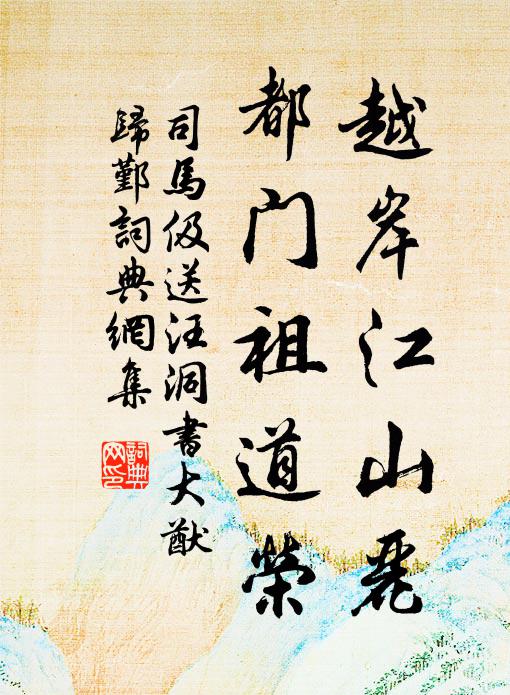 越岸江山麗
都门祖道榮
司馬伋送汪洞書大猷
歸鄞詞典網集
詞典网印